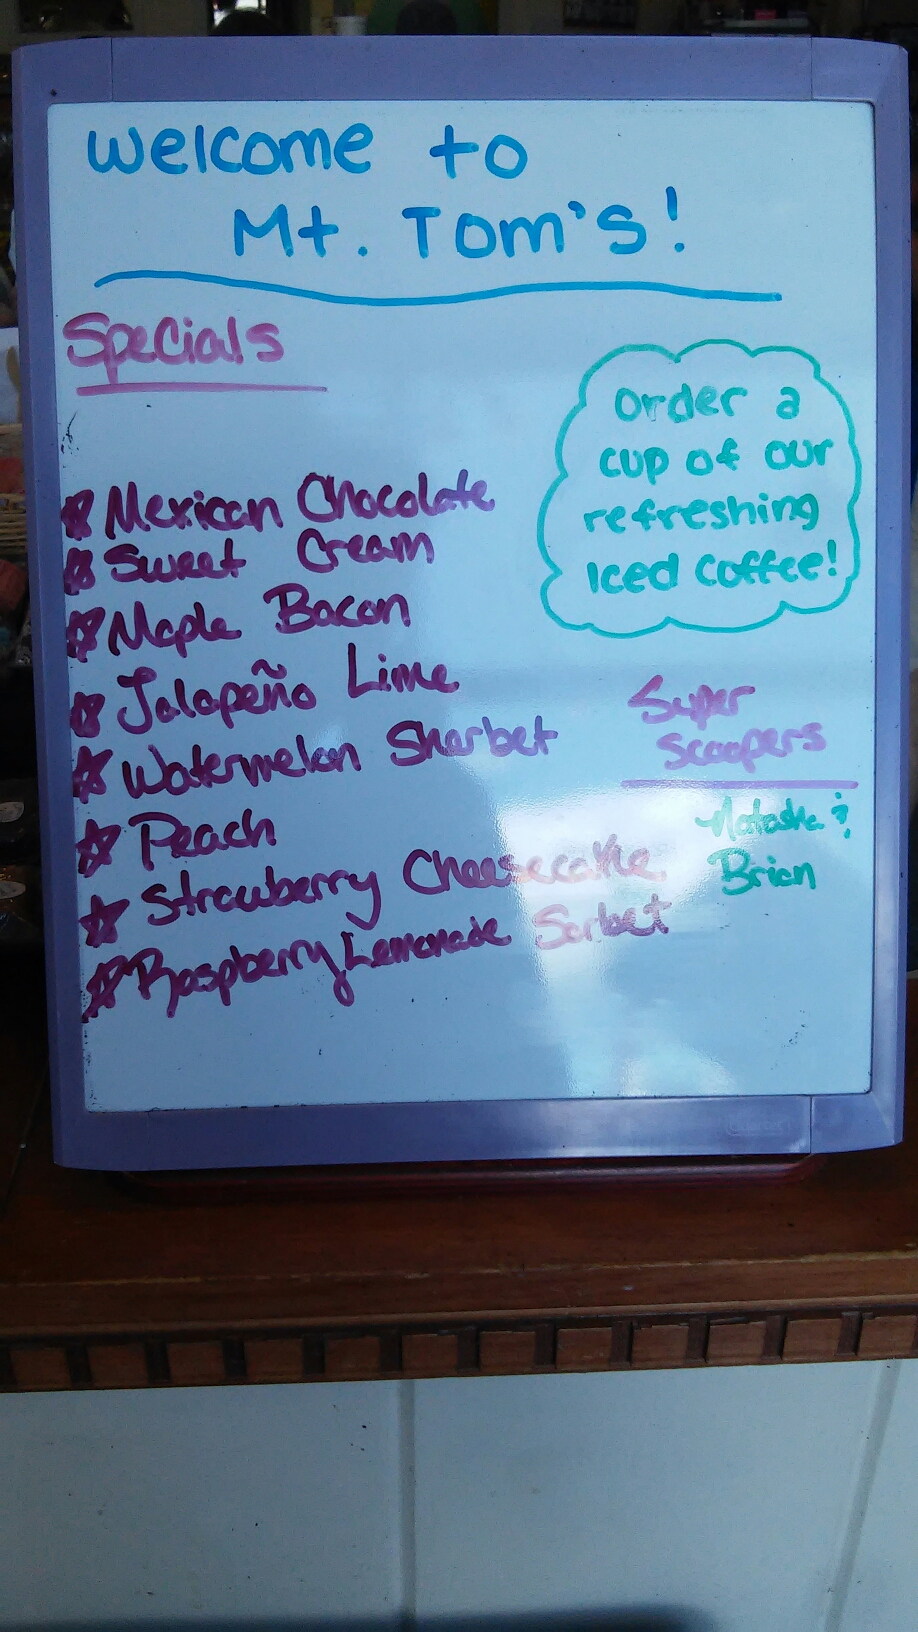 Welcome to
Mt. Tom's!
Specials
Mexican Chocolate
Sweet Cream
Maple Bacon
Jalapeño Lime
Watermelon Sherbet
Peach
Strawberry Cheesecake
Raspberry Lemonade Sorbet
Order a
cup of our
refreshing
Iced coffee!
Super
Scoopers
Natasha &
Brian